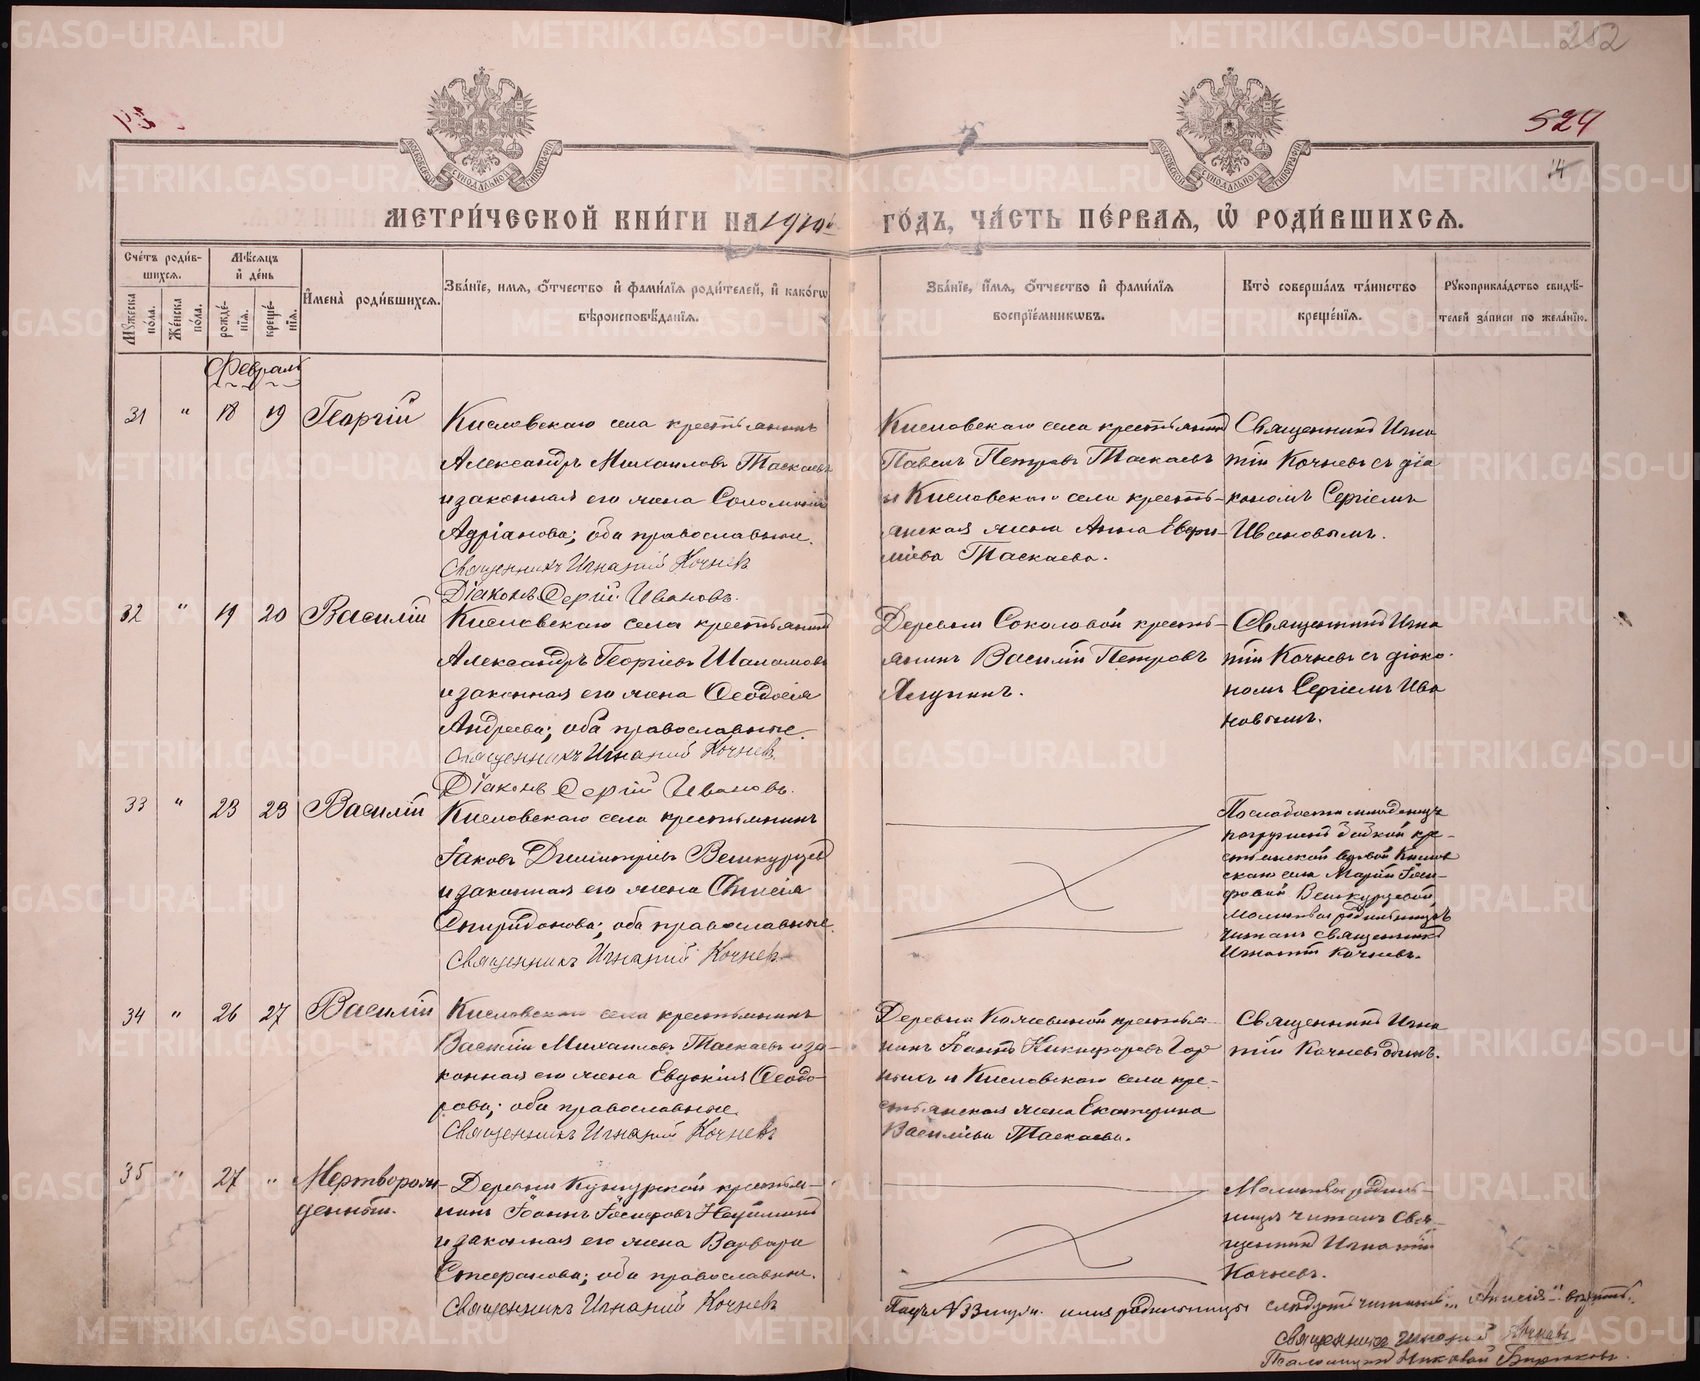 252
524
14
МЕТРИ́ЧЕСКОЙ КНИ́ГИ НА 1910й ГО́ДЪ, ЧА́СТЬ ПЕ́РВАѦ, Ѡ҆ РОДИ́ВШИХСѦ.
Сче́тъ роди́в-
шихсѧ.
Мѣ́сѧцъ
и҆ де́нь
Мꙋ́жеска
по́ла.
Же́нска
по́ла.
рожде́-
нїѧ.
креще́-
нїѧ.
И҆мена̀ роди́вшихсѧ.
Зва́нїе, имѧ, ѻ҆́тчество и҆ фами́лїѧ роди́телей, и҆ како́гѡ
вѣроисповѣ́данїѧ.
Зва́нїе, и҆́мѧ, ѻ҆́тчество и҆ фами́лїѧ
воспрїе́мникѡвъ.
Кто̀ соверша́лъ та́инство
креще́нїѧ.
Рꙋкоприкла́дство свидѣ́-
телей за́писи по жела́нїю.
Февраль
31 " 18 19 Георгій
Кисловскаго села крестьянинъ
Александръ Михаиловъ Таскаевъ
и законная его жена Соломонія
Адріанова; оба православные.
Священникъ Игнатій Кочневъ
Діаконъ Сергій Ивановъ.
Кисловскаго села крестьянинъ
Павелъ Петровъ Таскаевъ
и Кисловскаго села кресть-
янская жена Анна Евфи-
міева Таскаева.
Священникъ Игна
тій Кочневъ съ діа
кономъ Сергіемъ
Ивановымъ.
32 " 19 20 Василій
Кисловскаго села крестьянинъ
Александръ Георгіевъ Шаламовъ
и законная его жена Ѳеодосія
Андреева; оба православные.
Священникъ Игнатій Кочневъ
Діаконъ Сергій Ивановъ.
Деревни Соколовой кресть-
янинъ Василій Петровъ
Ягупинъ.
Священникъ Игна
тій Кочневъ съ діако-
номъ Сергіемъ Ива
новымъ.
33 " 23 23 Василій
Кисловскаго села крестьянинъ
Іаковъ Димитріевъ Вешкурцевъ
и законная его жена Анисія
Спиридонова; оба православные.
Священникъ Игнатій Кочневъ
По слабости младенца
погруженъ бабкой кре-
стьянской вдовой Кислов
скаго села Маріей Іоси-
фовой Вешкурцевой,
Молитвы родильницѣ
читалъ священникъ
Игнатій Кочневъ.
34 " 26 27 Василій
Кисловскаго села крестьянинъ
Василій Михаиловъ Таскаевъ и за-
конная его жена Евдокія Ѳеодо-
рова; оба православные.
Священникъ Игнатій Кочневъ
Деревни Кожевиной крестья-
нинъ Іоаннъ Никифоровъ Гор
ныхъ и Кисловскаго села кре-
стьянская жена Екатерина
Васильева Таскаева.
Священникъ Игна
тій Кочневъ одинъ.
35 " 27 " Мертворож-
денный.
Деревни Кунгурской крестья-
нинъ Іоаннъ Іосифовъ
и законная его жена Варвара
Стефанова; оба православные.
Священникъ Игнатій Кочневъ
Молитвы родиль-
ницѣ читалъ Свя-
щенникъ Игнатій
Кочневъ.
Подъ № 33 имя родильницы слѣдуетъ читать: "Анисія"
Священникъ Игнатій Кочневъ
Псаломщикъ Бирюковъ.
METRIKI.GASO-URAL.RU